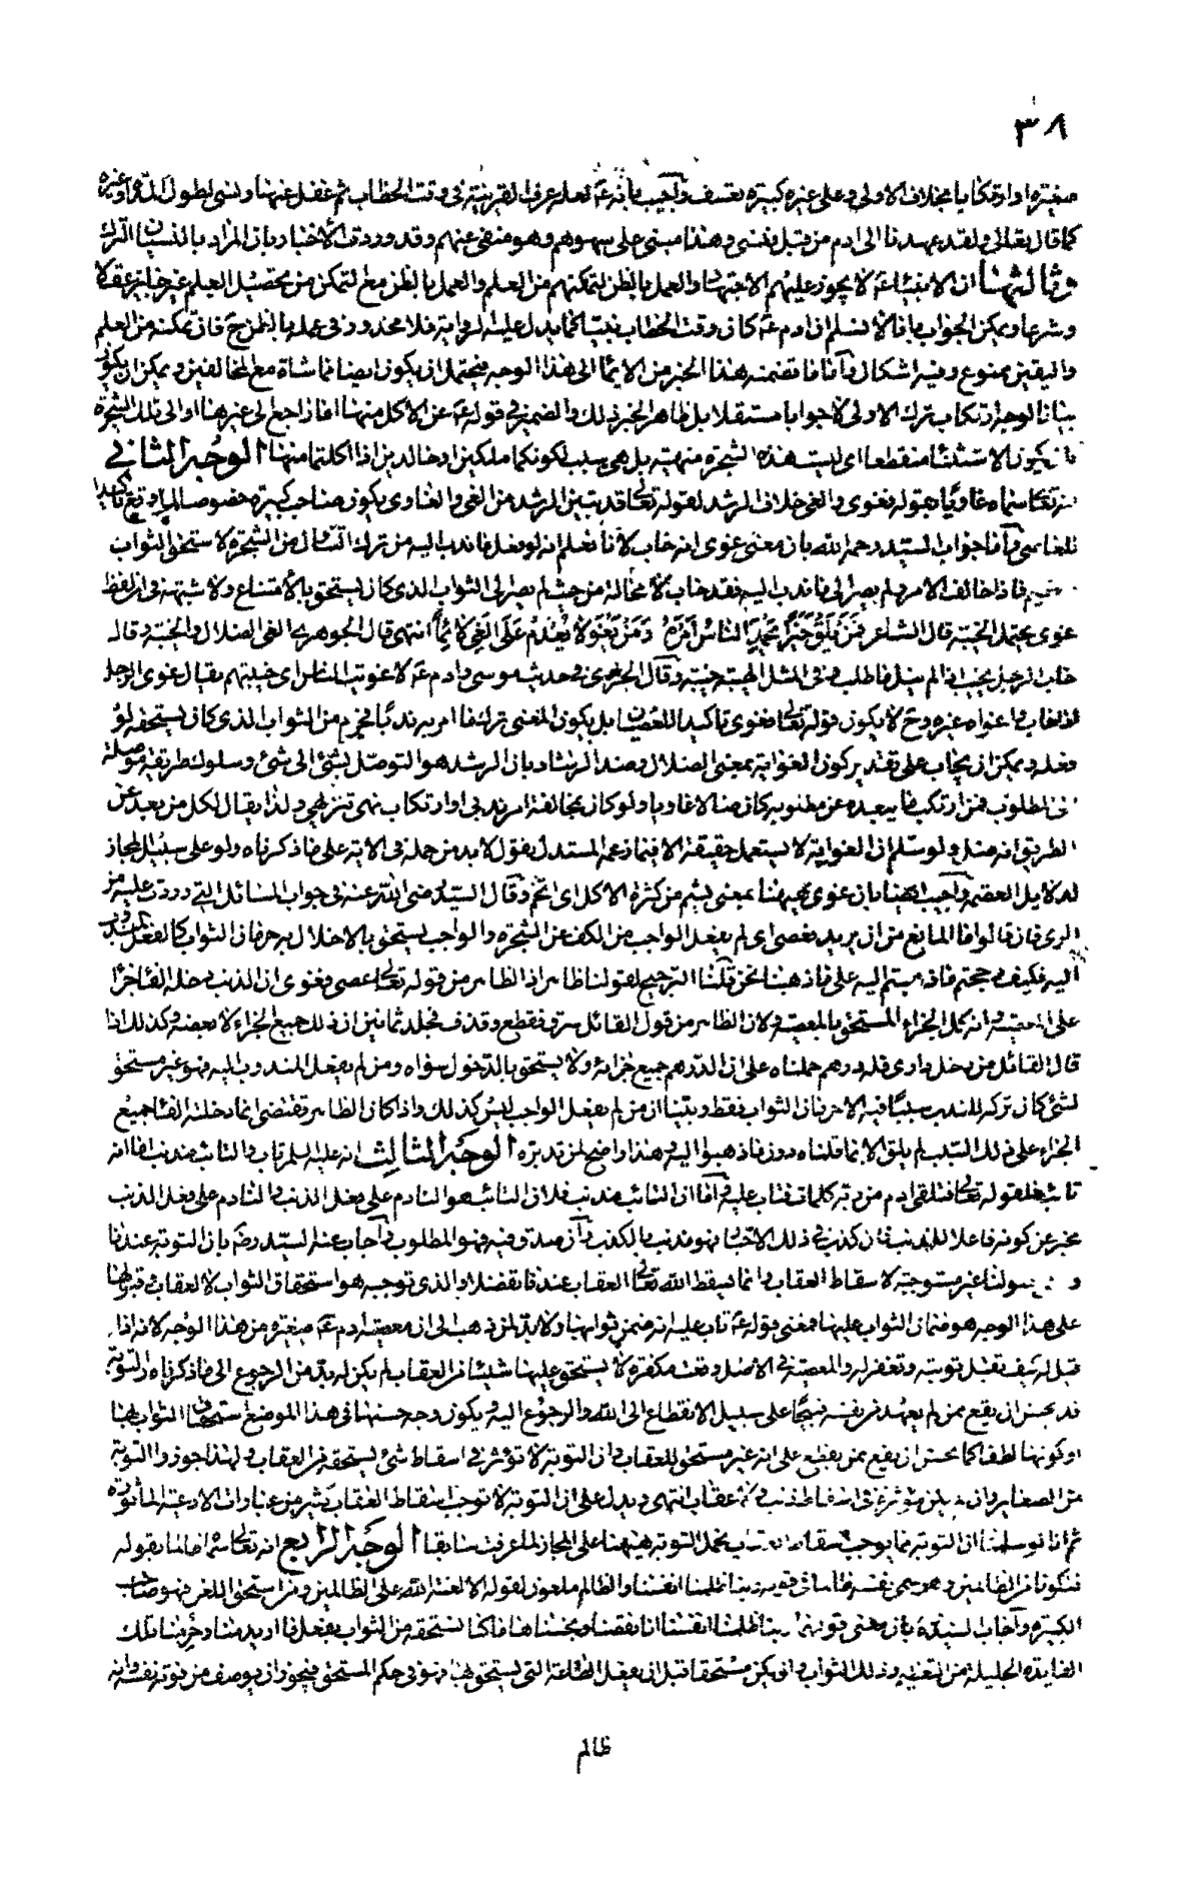 ٣٨
صغيرة او ارتكابا بخلاف الاولى وعلى غيره كبيرة تعسف وأجيب بانه ع لعله عرف القرينة فى وقت الخطاب ثم غفل عنها ونسى لطول المدة او غيره
كما قال تعالى ولقد عهدنا الى ادم من قبل فنسى وهذا مبنى على سهوهم وهو منفى عنهم وقد وردت الأخبار بان المراد بالنسيان الترك
وثالثها ان الانبياء ع لا يجوز عليهم الاجتهاد والعمل بالظن لتمكنهم من العلم والعمل بالظن مع التمكن من تحصيل العلم غير جايز عقلا
وشرعا ويمكن الجواب بانا لا نسلم ان ادم ع كان وقت الخطاب نبيا كما يدل عليه الرواية فلا محذور فى عمله بالظن ح فان تمكنه من العلم
واليقين ممنوع وفيه اشكال وأنا ما تضمنه هذا الخبر من الايماء الى هذا الوجه فيحتمل ان يكون ايضا مماشاة مع المخالفين ويمكن ان يكون
بيانا لوجه ارتكاب ترك الاولى لا جوابا مستقلا بل ظاهر الخبر ذلك والضمير فى قوله ع عن الاكل منها انما راجع الى غيرها او الى تلك الشجرة
بان يكون الاستثناء منقطعا اى ليست هذه الشجرة منهية بل هى سبب لكونكما ملكين او خالدين اذا اكلتما منها الوجه الثانى
انه تعالى سماه غاويا بقوله فغوى والغى خلاف الرشد لقوله تعالى قد تبين الرشد من الغى والغاوى يكون صاحب كبيرة خصوصا اذا وقع تاكيدا
للعاصى وأما جواب السيد رحمه الله بان معنى غوى انه خاب لأنا نعلم انه لو فعل ما ندب اليه من ترك التناول من الشجرة لاستحق الثواب
العظيم فاذا خالف الامر ولم يصر الى ما ندب اليه فقد خاب لا محالة من حيث لم يصر الى الثواب الذى كان يستحق بالأمتناع ولا شبهة فى ان لفظ
غوى يحتمل الخيبة قال الشاعر فَمَنْ يَلْقَ خَيْراً يَحْمَدِ النَّاسُ اَمْرَهُ وَمَنْ يَغْوَ لا يَعْدَمْ عَلَى الْغَىِّ لائِماً انتهى قال الجوهرى الغى الضلال والخيبة وقال
خاب الرجل يخيب اذا لم ينل ما طلب وفى المثل الهيبة خيبة وقال الجزرى فى حديث موسى وادم ع لاغويت الناس اى خيبتهم يقال غوى الرجل
اذا خاب واغواه غيره وح لا يكون قوله تعالى فغوى تاكيدا للعصيان بل يكون المعنى ترك ما امر به ندبا فحرم من الثواب الذى كان يستحقه لو
فعله ويمكن ان يجاب على تقدير كون الغواية بمعنى الضلال وضد الرشاد بان الرشد هو التوصل بشئ الى شئ وسلوك طريقة موصلة
الى المطلوب فمن ارتكب ما يبعده عن مطلوبه كان ضالا غاويا ولو كان بمخالفة امر ندبى او ارتكاب نهى تنزيهى ولذا يقال لكل من بعد عن
الطريق انه ضل ولو سلم ان الغواية لا يستعمل حقيقة الا فيما زعمه المستدل نقول لا بد من حمله فى الاية على ما ذكرناه ولو على سبيل المجاز
لدلايل العصمة وأجيب ايضا بان غوى هيهنا بمعنى بشم من كثرة الاكل اى اتخم وقال السيد رضى الله عنه فى جواب المسائل التى وردت عليه من
الرى فان قالوا ما المانع من ان يريد بعصى اى لم يفعل الواجب من الكف عن الشجرة والواجب يستحق بالاخلال به حرمان الثواب كالفعل المندوب
اليه فكيف رجحتم ما ذهبتم اليه على ما ذهبنا نحن قلنا الترجيح لقولنا ظاهر اذ الظاهر من قوله تعالى عصى فغوى ان الذى دخلته الفاء جزاء
على المعصية وانه كل الجزاء المستحق بالمعصية ولان الظاهر من قول القائل سرق فقطع وقذف فجلد ثمانين ان ذلك جميع الجزاء لا بعضه وكذلك اذا
قال القائل من دخل دارى فله درهم حملناه على ان الدرهم جميع جزائه ولا يستحق بالدخول سواه ومن لم يفعل المندوب اليه فهو غير مستحق
لشئ كان تركه للندب سببا فيه الا حرمان الثواب فقط وبينا ان من لم يفعل الواجب ليس كذلك واذا كان الظاهر يقتضى انما دخلته الفاء جميع
الجزاء على ذلك السبب لم يلق الا بما قلناه دون ما ذهبوا اليه وهذا واضح لمن تدبره الوجه الثالث انه عليه السلم تاب والتائب مذنب اما انه
تائب فلقوله تعالى فتلقى ادم من ربه كلمات فتاب عليه وأما ان التائب مذنب فلان التائب هو النادم على فعل الذنب والنادم على فعل الذنب
مخبر عن كونه فاعلا للذنب فان كذب فى ذلك الاخبار فهو مذنب بالكذب وان صدق فيه فهو المطلوب وأجاب عنه السيد رضه بان التوبة عندنا
و اصولنا غير مستوجبة لاسقاط العقاب وانما يسقط الله تعالى العقاب عندها تفضلا والذى توجبه هو استحقاق الثواب لا العقاب فقبولها
على هذا الوجه هو ضمان الثواب عليها فمعنى قوله ع تاب عليه انه ضمن ثوابها ولا بد لمن ذهب الى ان معصية ادم ع صغيرة من هذا الوجه لانه اذا
قيل له كيف تقبل توبته وتغفر له والمعصية فى الاصل وقعت مكفرة لا يستحق عليها شيئا من العقاب لم يكن له بد من الرجوع الى ما ذكرناه والتوبة
قد يحسن ان يقع ممن لم يعهد من نفسه قبيحا على سبيل الانقطاع الى الله والرجوع اليه ويكون وجه حسنها فى هذا الموضع استحقاق الثواب بها
او كونها لطفا كما يحسن ان يقع ممن يقطع على انه غير مستحق للعقاب وان التوبة لا تؤثر فى اسقاط شئ يستحقه من العقاب ولهذا جوزوا التوبة
من الصغاير وان لم يكن مؤثرة فى اسقاط ذنب ولا عقاب انتهى ويدل على ان التوبة لا توجب اسقاط العقاب كثير من عبارات الادعية المأثورة
ثم انا لو سلمنا ان التوبة مما يوجب اسقاط العقاب يحمل التوبة هيهنا على المجاز لما عرفت سابقا الوجه الرابع انه تعالى سماه ظالما بقوله
فتكونا من الظالمين وهو سمى نفسه ظالما فى قوله ربنا ظلمنا انفسنا والظالم ملعون لقوله الا لعنة الله على الظالمين ومن استحق اللعن فهو صاحب
الكبيرة وأجاب السيد ره بان معنى قولهما ربنا ظلمنا انفسنا انا نقصناها وبخسناها ما كنا نستحقه من الثواب بفعل ما اريد منا وحرمنا تلك
الفايدة الجليلة من التعظيم وذلك الثواب وان لم يكن مستحقا قبل ان يفعل الطاعة التى يستحق بها فهو فى حكم المستحق فيجوز ان يوصف من فوته نفسه بانه
ظالم